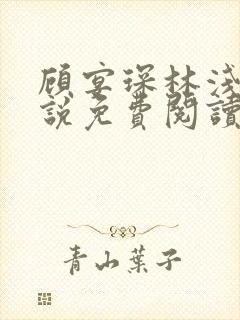 顧宴琛林淺
說免費閱讀
青山葉子